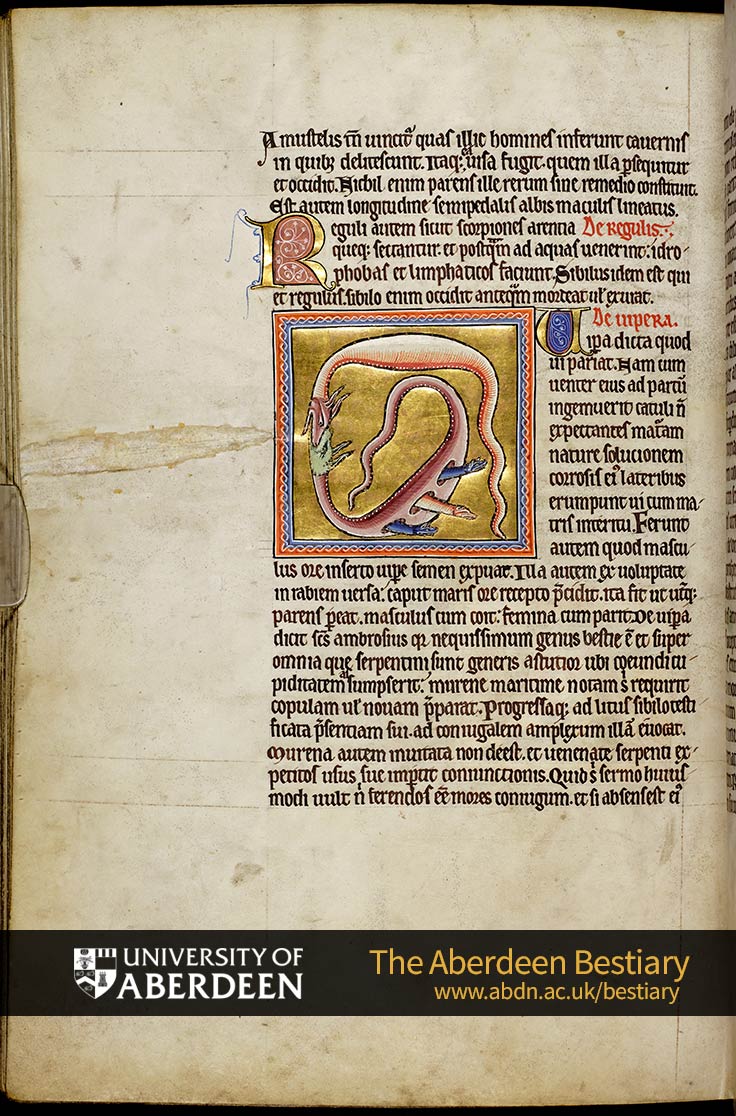 A mustelis tn̄ uincit᷑ quas illic homines inferunt cauernis
in quibꝫ delitescunt. Itaqꝫ ea uisa fugit. quem illa ꝑsequitur
et occidit. Nichil enim parens ille rerum sine remedio constituit.
Est autem longitudine semipedalis albis maculis lineatus.
Reguli autem sicut scorpiones arentia De regulis.
queqꝫ sectantur. et postqͣm ad aquas uenerint: idro-
phobas et limphaticos faciunt. Sibilus idem est qui
et regulus. sibilo enim occidit anteqͣm mordeat ul' exurat.
De uipera.
Uipa dicta quod
ui pariat. Nam cum
uenter eius ad partū
ingemuerit catuli n̄
expectantes maturam
nature solucionem
corrosis ei' lateribus
erumpunt ui cum ma-
tris interitu. Ferunt
autem quod mascu-
lus ore inserto uipe semen expuat. Illa autem ex uoluptate
in rabiem uersa: caput maris ore recepto p̄cidit. ita fit ut utqꝫ
parens ꝑeat. masculus cum coit: femina cum parit. De uipa
dicit sc̄s ambrosius qꝛ nequissimum genus bestie ē et super
omnia que serpentini sunt generis astutior ubi coeundi cu-
piditatem sumpserit: murene maritime notam s' requirit
copulam ul' nouam p̄parat. Progressaqꝫ ad litus sibilo testi
ficata p̄sentiam sui. ad coniugalem amplexum illā euocat.
Murena autem inuitata non deest. et uenenate serpenti ex-
petitos usus sue imptit coniunctionis. Quid s' sermo huius
modi uult n̄ ferendos eē mores coniugum. et si absens est ei'
UNIVERSITY OF
ABERDEEN
The Aberdeen Bestiary
www.abdn.ac.uk/bestiary